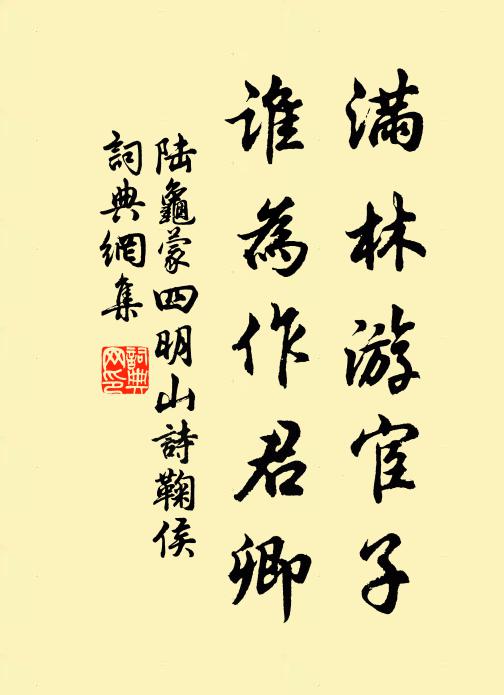 滿林游宦子
誰為作君卿
陸龜蒙四明山詩鞠侯
詞典網集
詞典
网印